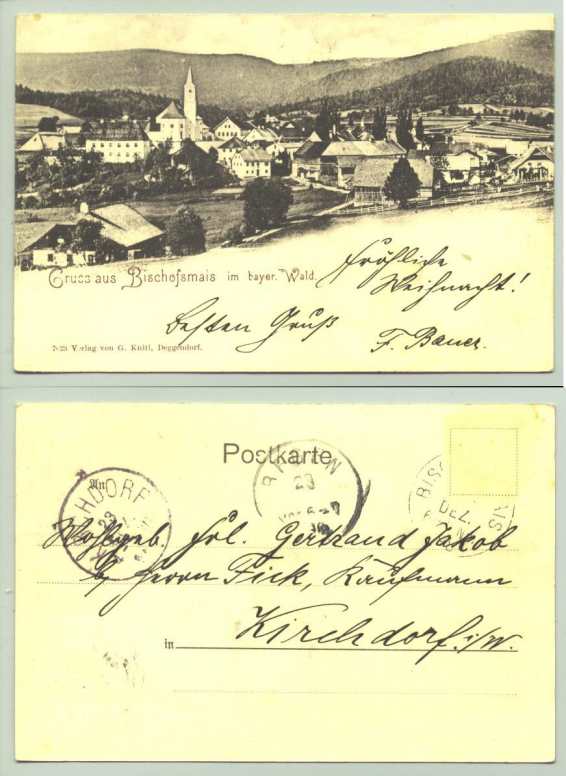 Gruss aus Bischofsmais im bayer. Wald.
Fröhliche
Weihnacht!
Besten Gruß
F. Bauer.
Verlag von G. Knitl, Deggendorf.
Postkarte
An
HDORF
23
23
BIS
DEZ.
IS
Wohlgeb. Frl. Gertraud Jakob
b/ Herrn Fick, Kaufmann
in Kirchdorf. i/W.